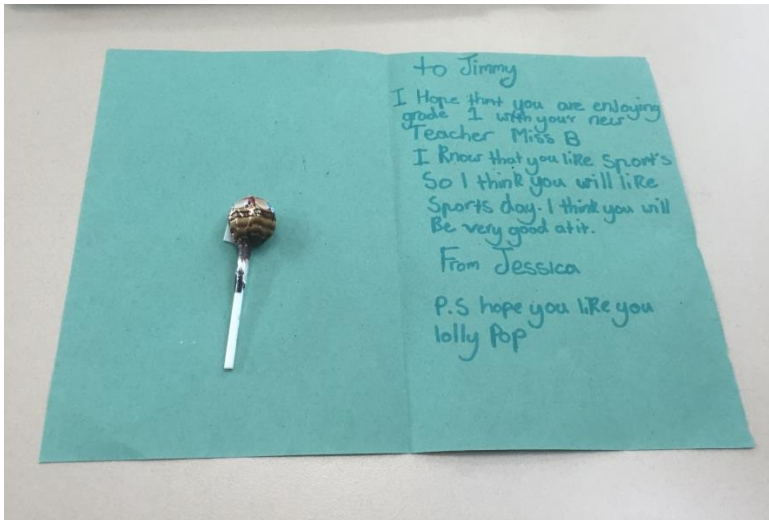 to Jimmy
I Hope that you are enjoying
grade 1 with your new
Teacher Miss B
I Know that you like Sports
So I think you will like
Sports day. I think you will
Be very good at it.
From Jessica
P.S hope you like you
lolly Pop